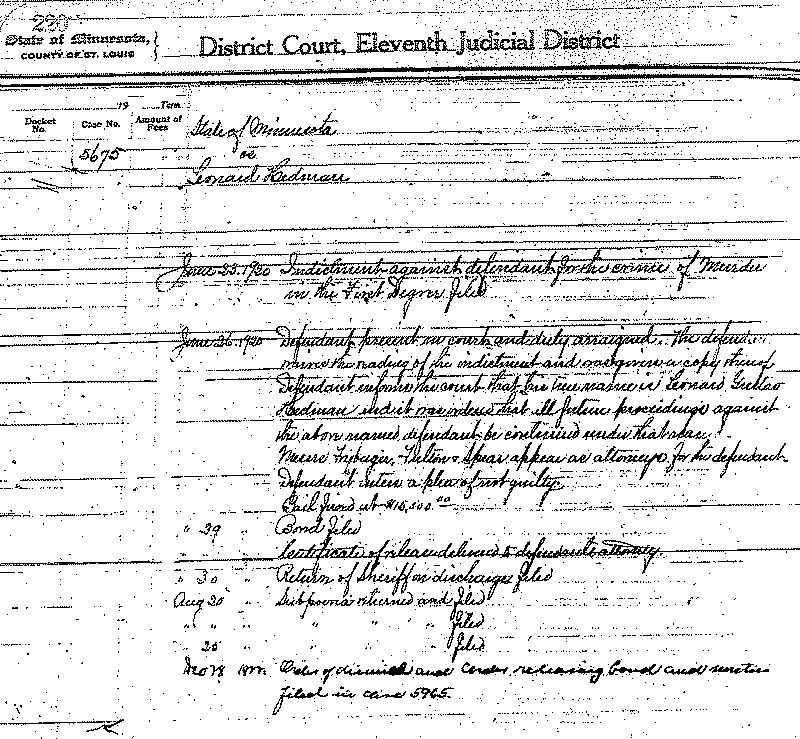 220
State of Minnesota,
COUNTY OF ST. LOUIS
District Court, Eleventh Judicial District
19 Term
Docket No.
Case No.
Amount of Fees
State of Minnesota
vs
5675
Leonard Hedman
June 25, 1920 Indictment against defendant for the crime of Murder
in the First Degree filed
June 26 1920 Defendant present in court and duly arraigned. The defend.
waives the reading of the indictment and was given a copy thereof
Defendant informs the court that his true name is Leonard
Hedman and it was orders that all future proceedings against
the above named defendant be continued under that name.
Messrs Fryberger, Fulton & Spear appear as attorneys for the defendant.
Defendant enters a plea of not guilty
Bail fixed at $10,500.00
" 29 " Bond filed
Certificate of release delivered to defendants attorney.
" 30 " Return of Sheriff on discharge filed
Aug 20 " Subpoena returned and filed
" " " " " " filed
" 25 " filed
Dec 18 Order of dismissal and Order releasing bond and
filed in case 5965.